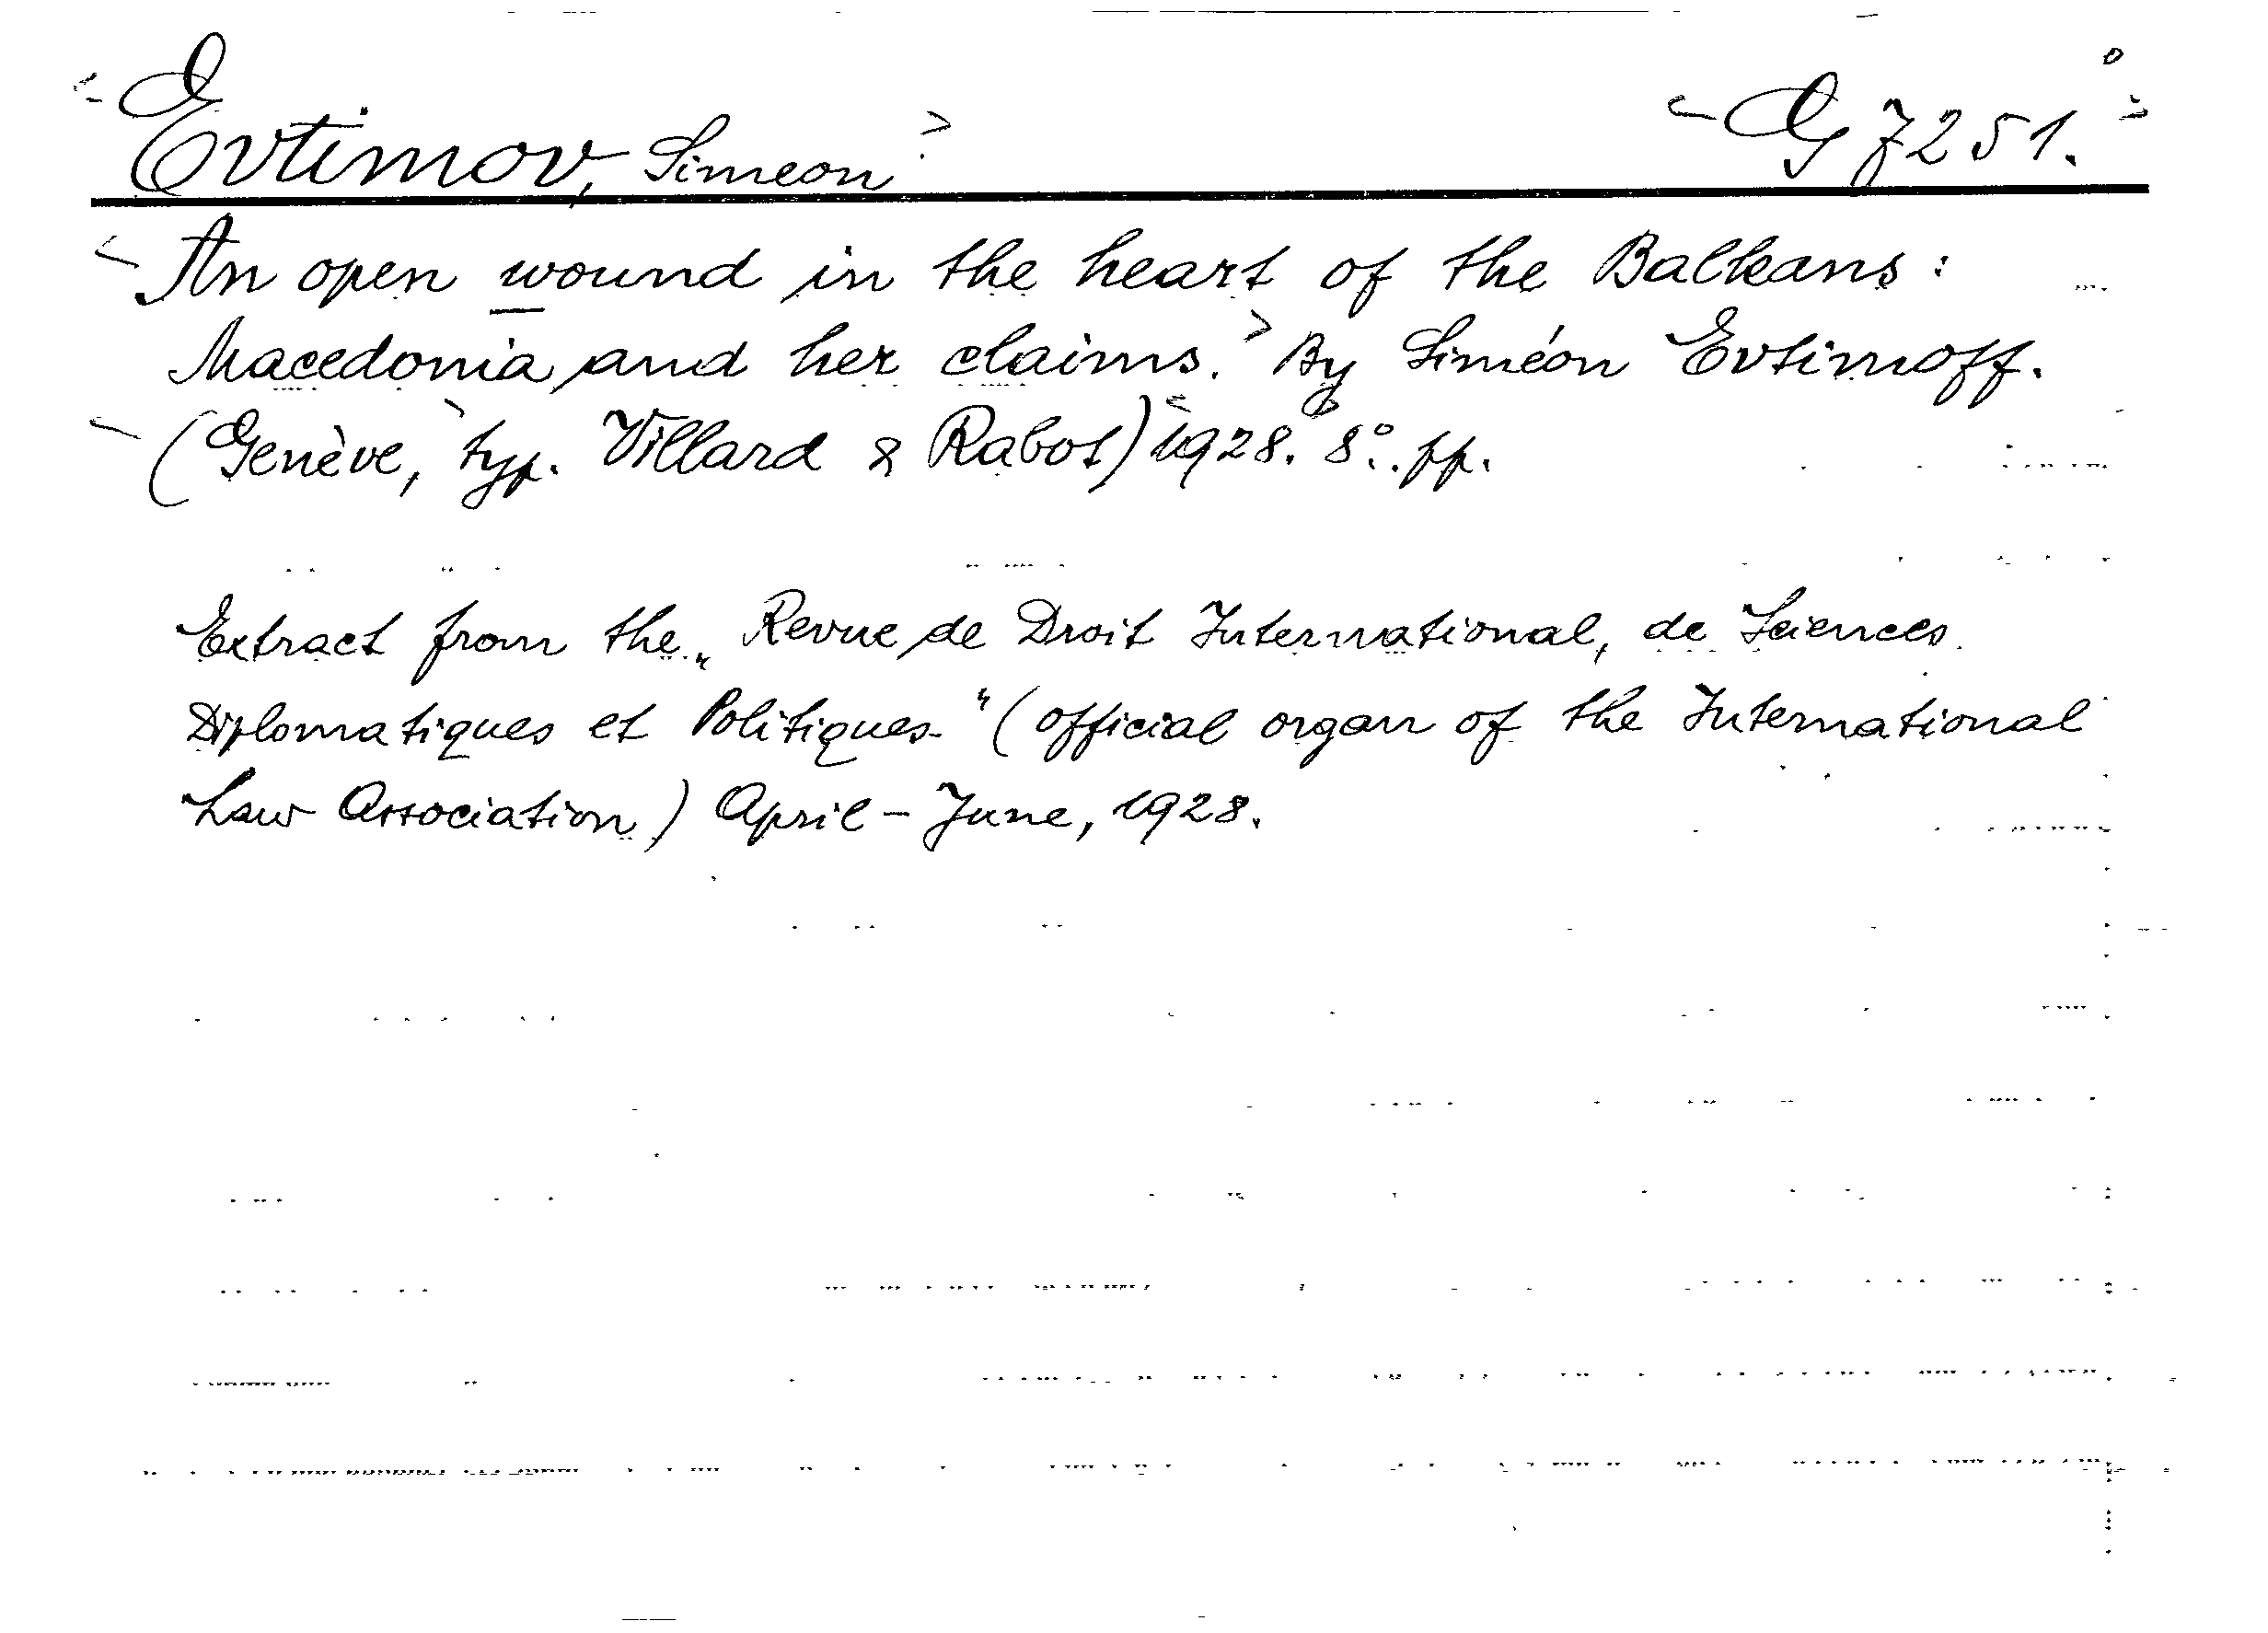 Evtimov, Simeon G 7251.
An open wound in the heart of the Balkans:
Macedonia and her claims. By Siméon Evtimoff.
(Genève, typ. Villard & Rabot) 1928. 8°. pp.
Extract from the „Revue de Droit International, de Sciences
Diplomatiques et Politiques" (official organ of the International
Law Association) April - June, 1928.